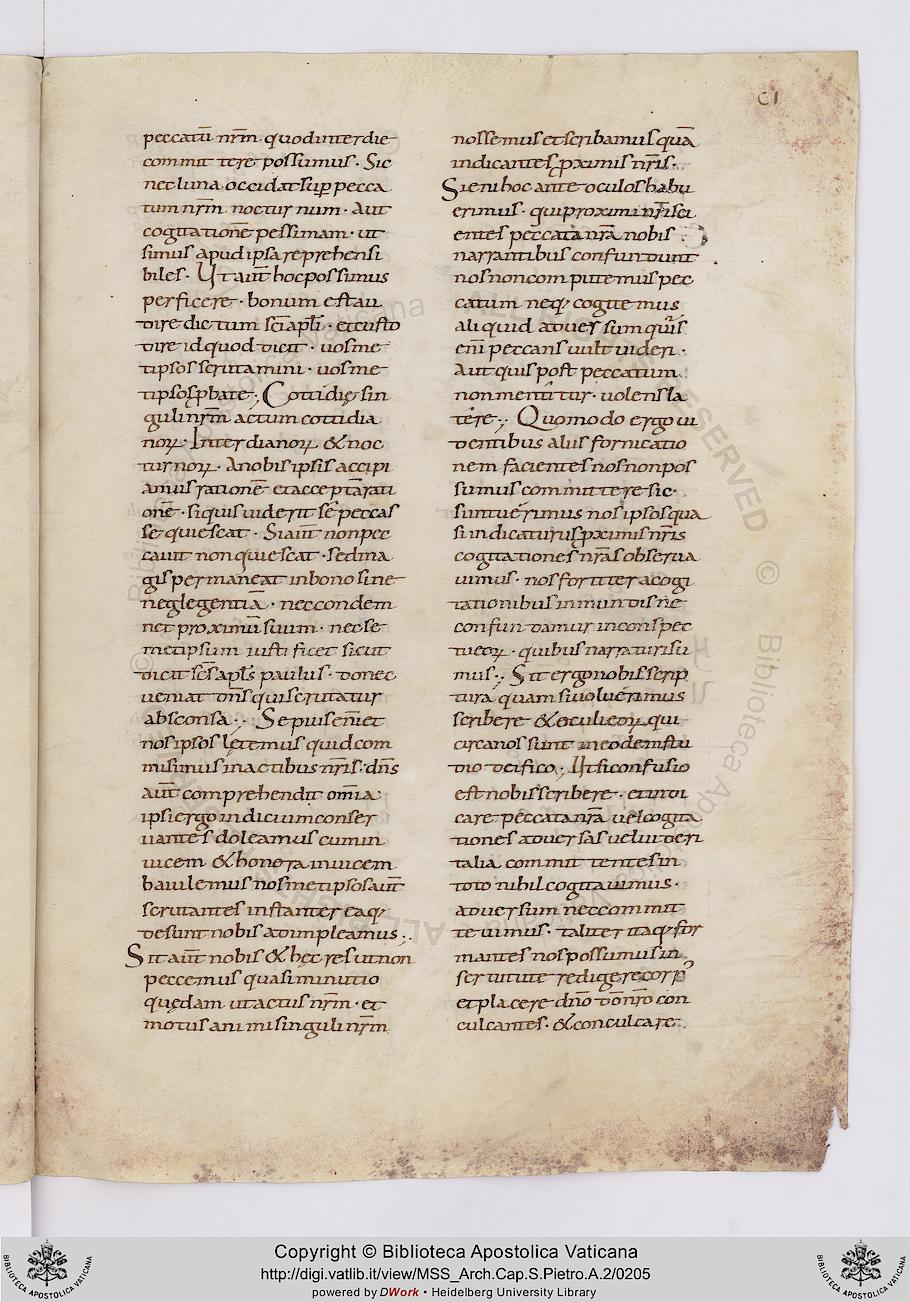 CI
peccatū nr̄m quod inter die
commit tere possumus · Sic
nec luna occidat sup̱ pecca
tum nr̄m noctur num · Aut
cogitationē pessimam · ut
simus apud ipsa reprehensi
biles · Ut aut̄ hoc possimus
perficere · bonum est au
dire dic tum sc̄i ap̄li · et custo
dire id quod dicit · uos me
tipsos scruta mini · uos me
tipsos ꝓbate ·, Cottidię sin
guli nr̄m actum cottidia
noꝝ · Inter dianoꝝ & noc
tur noꝝ · A nobis ipsis accipi
amus rationē et accep tā rati
onē · si quis uiderit sē peccas
se quiescat · Si aut̄ non pec
cauit non quiescat · sed ma
gis per maneat in bono sine
neglegentiā · nec condem
net proximū suum · nec se
met ipsum iusti ficet sicut
dicit sc̄s ap̄ls paulus · donec
ueniat dn̄s qui scrutatur
absconsa ·. Sepius en̄i et
nos ipsos lętemus quid com
misimus in actibus nr̄is · dn̄s
aut̄ comprehendit om̄ia
ipsi ergo in dicium conser
uantes doleamus cum in
uicem & honora inuicem
baiulemus nosmetipsos aut̄
scrutantes instanter ea q;
desunt nobis adimpleamus ·,
Sit aut̄ nobis & hęc res ut non
peccemus quasi minutio
quędam ut actus nr̄m · et
motus ani mi singuli nr̄m
nossemus et scribamus quā
indicantes ꝓximis nr̄is ·
Si eni hoc ante oculos habu
erimus · qui proximi nr̄i sci
entes peccata nr̄a nobis
narrantibus confundunt
nos non com putemus pec
catum neq; cogitemus
ali quid aduersum quis
en̄i peccans uult uideri ·
Aut quis post peccatum
non mentitur · uolens la
tēre ·, Quomodo ergo ui
dentibus aliis fornicatio
nem facientes nos non pos
sumus committere sic ·
si intuērimus nos ipsos qua
si indicaturi ꝓximis nr̄is
cogitationes nr̄as obserua
uimus · nos fortiter a cogi
tationibus inmundis ne
confundamur in conspec
tu eoꝝ · quibus narraturi su
mus ·, Sit ergo nobis scrip
tura quam si uoluērimus
scribere & oculi eoꝝ qui
circa nos sunt in eodem stu
dio deifico ·, Ut si confusio
est nobis scribere · et indi
care peccata nr̄a uel cogita
tiones aduer sas uel uideri
talia committentes in
toto nihil cogitauimus ·
aduersum nec commit
te uimus · taliter itaq; for
mantes nos possumus in
ser uitute redigere corp̱
et placere dn̄o dō nr̄o con
culcantes · & conculcare
Copyright © Biblioteca Apostolica Vaticana
http://digi.vatlib.it/view/MSS_Arch.Cap.S.Pietro.A.2/0205
powered by DWork • Heidelberg University Library